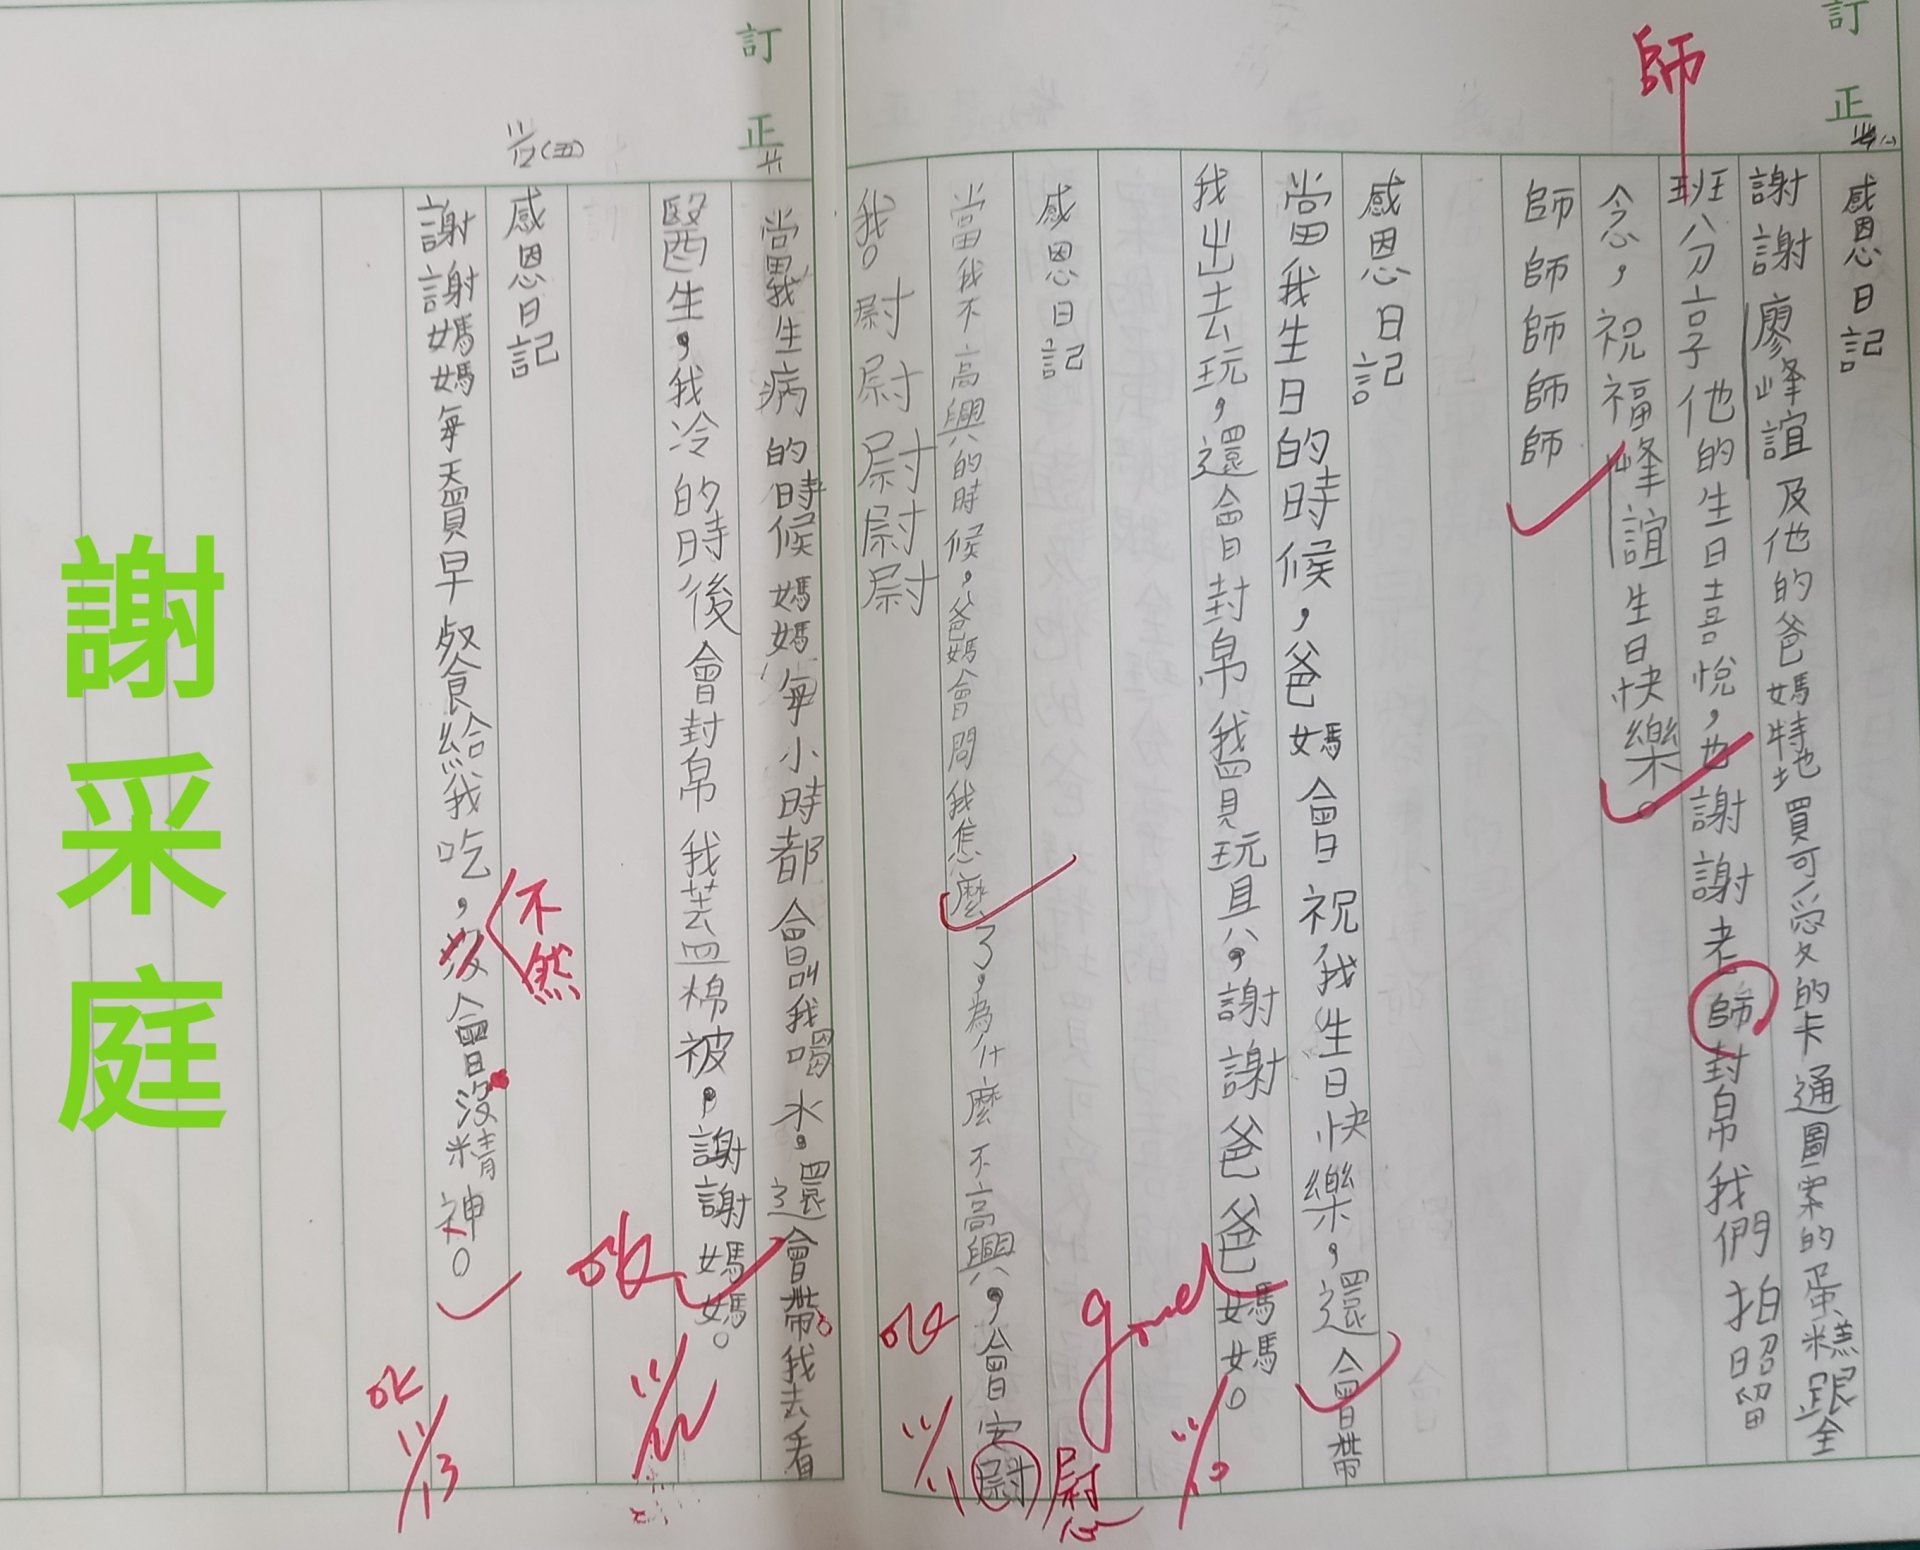 訂正
師
感恩日記
謝謝廖峰誼及他的爸媽特地買可愛的卡通圖案的蛋糕跟全
班分享他的生日喜悅，也謝謝老師封帛我們拍照留
念，祝福峰誼生日快樂。
師師師師師
感恩日記
當我生日的時候，爸媽會祝我生日快樂，還會帶
我出去玩，還會封帛我買玩具，謝謝爸爸媽媽。
good
11/10
感恩日記
當我不高興的時候，爸媽會問我怎麼了，為什麼不高興，會安尉
慰
我。尉尉尉尉尉
ok
11/11
訂正
當我生病的時候媽媽每小時都會叫我喝水，還會帶我去看
醫生，我冷的時後會封帛我蓋棉被，謝謝媽媽。
ok
11/12
11/12(五)
感恩日記
謝謝媽媽每天買早餐給我吃，會沒精神。
不然
ok
11/13
謝采庭